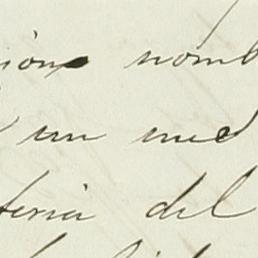 ione nomb
un med
teria del